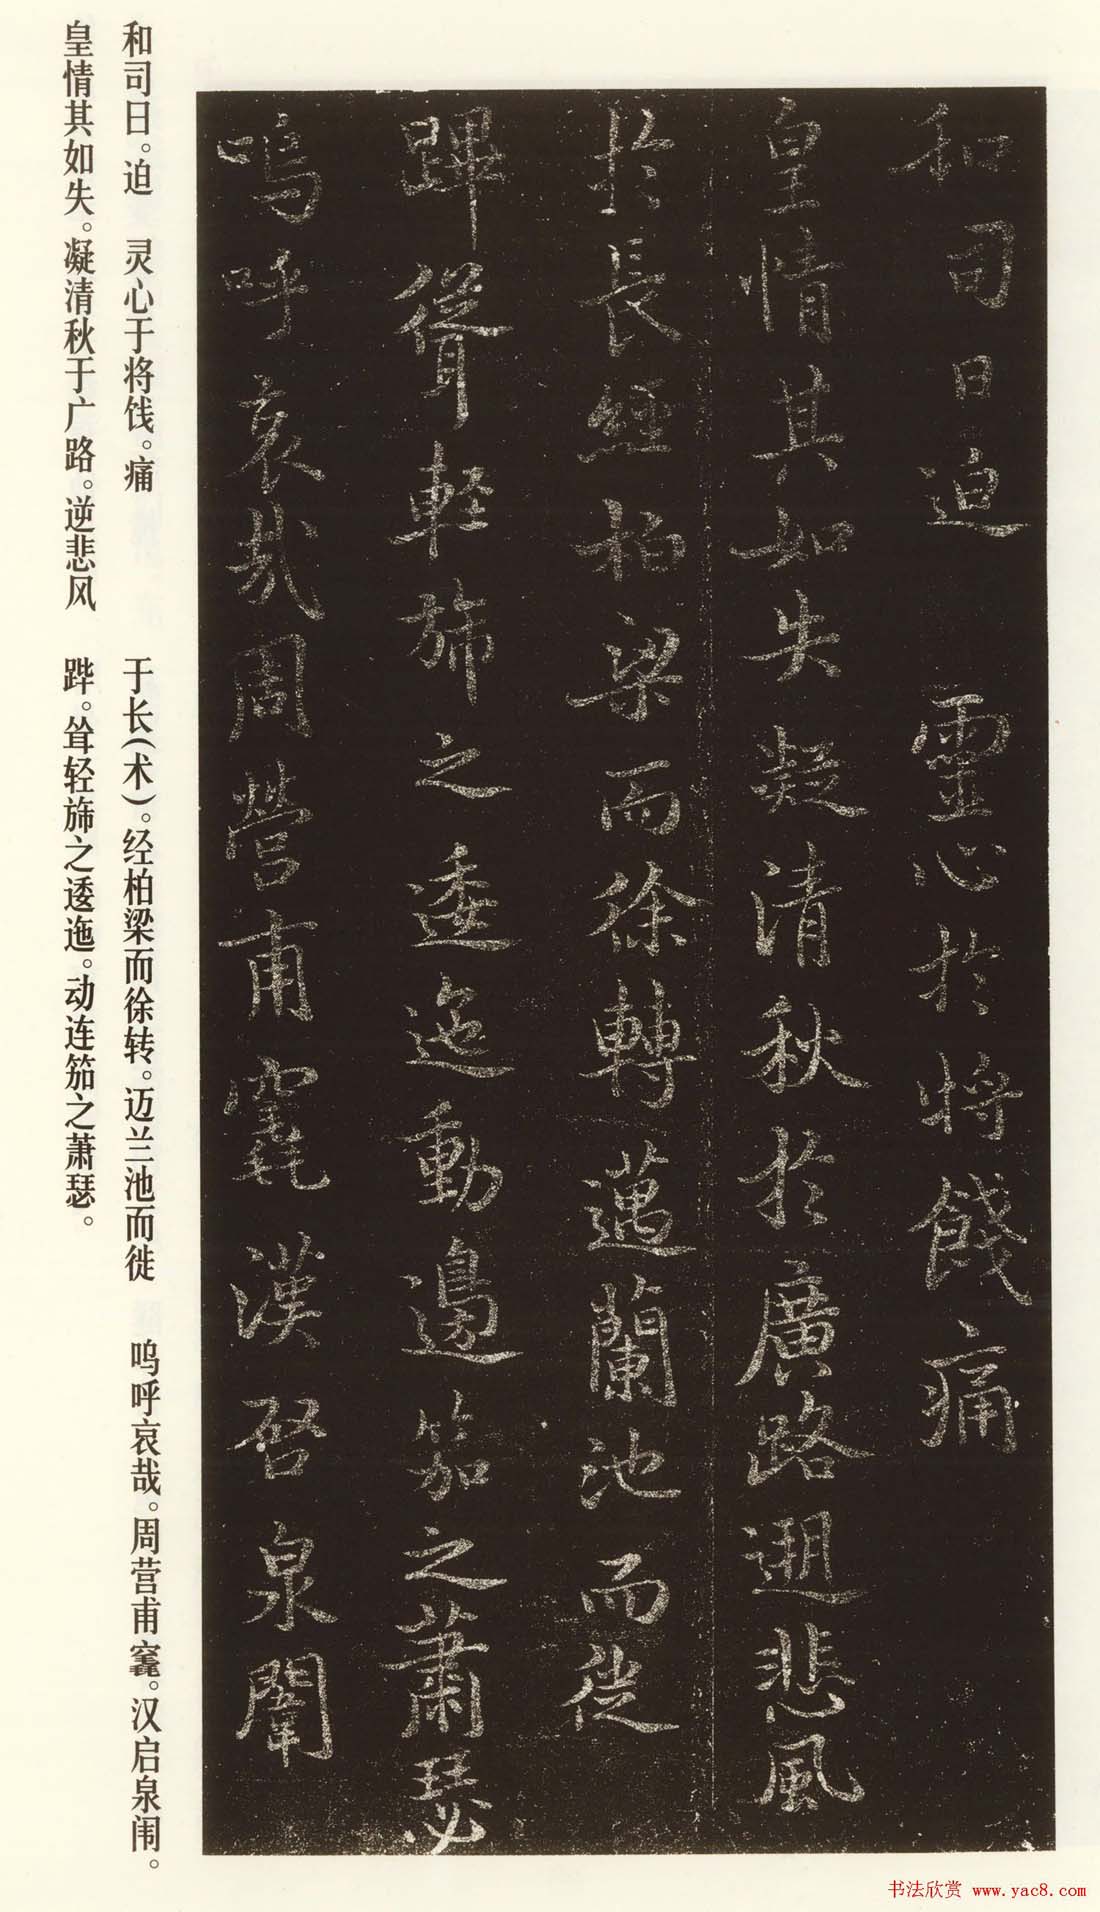 和司日迫　靈心於將餞痛
皇情其如失凝清秋於廣路遡悲風
於長經柏梁而徐轉邁蘭池而徙
蹕聳輕旆之逶迤動邊笳之蕭瑟
嗚呼哀哉周營甫窆漢啓泉闈
和司日。迫　灵心于将饯。痛
皇情其如失。凝清秋于广路。逆悲风
于长(术)。经柏梁而徐转。迈兰池而徙
跸。耸轻旆之逶迤。动连笳之萧瑟。
呜呼哀哉。周营甫窆。汉启泉闱。
书法欣赏 www.yac8.com